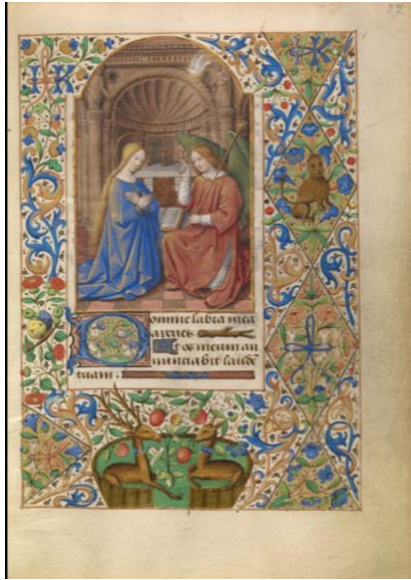 27
I K
Domine labia mea
aperies
Et os meum an
nunciabit laudē
tuam.